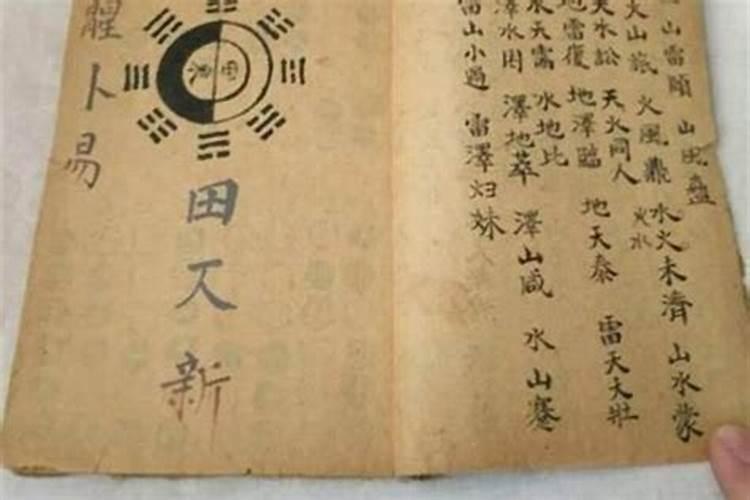 山雷頤 山風蠱
火山旅 火風鼎 水火未濟 山水蒙
火水
天水訟 天火同人
地雷復 地澤臨 地天泰 雷天大壯
水天需 水地比
澤水困 澤地萃 澤山咸 水山蹇
雷山小過 雷澤归妹
田又新
卜易